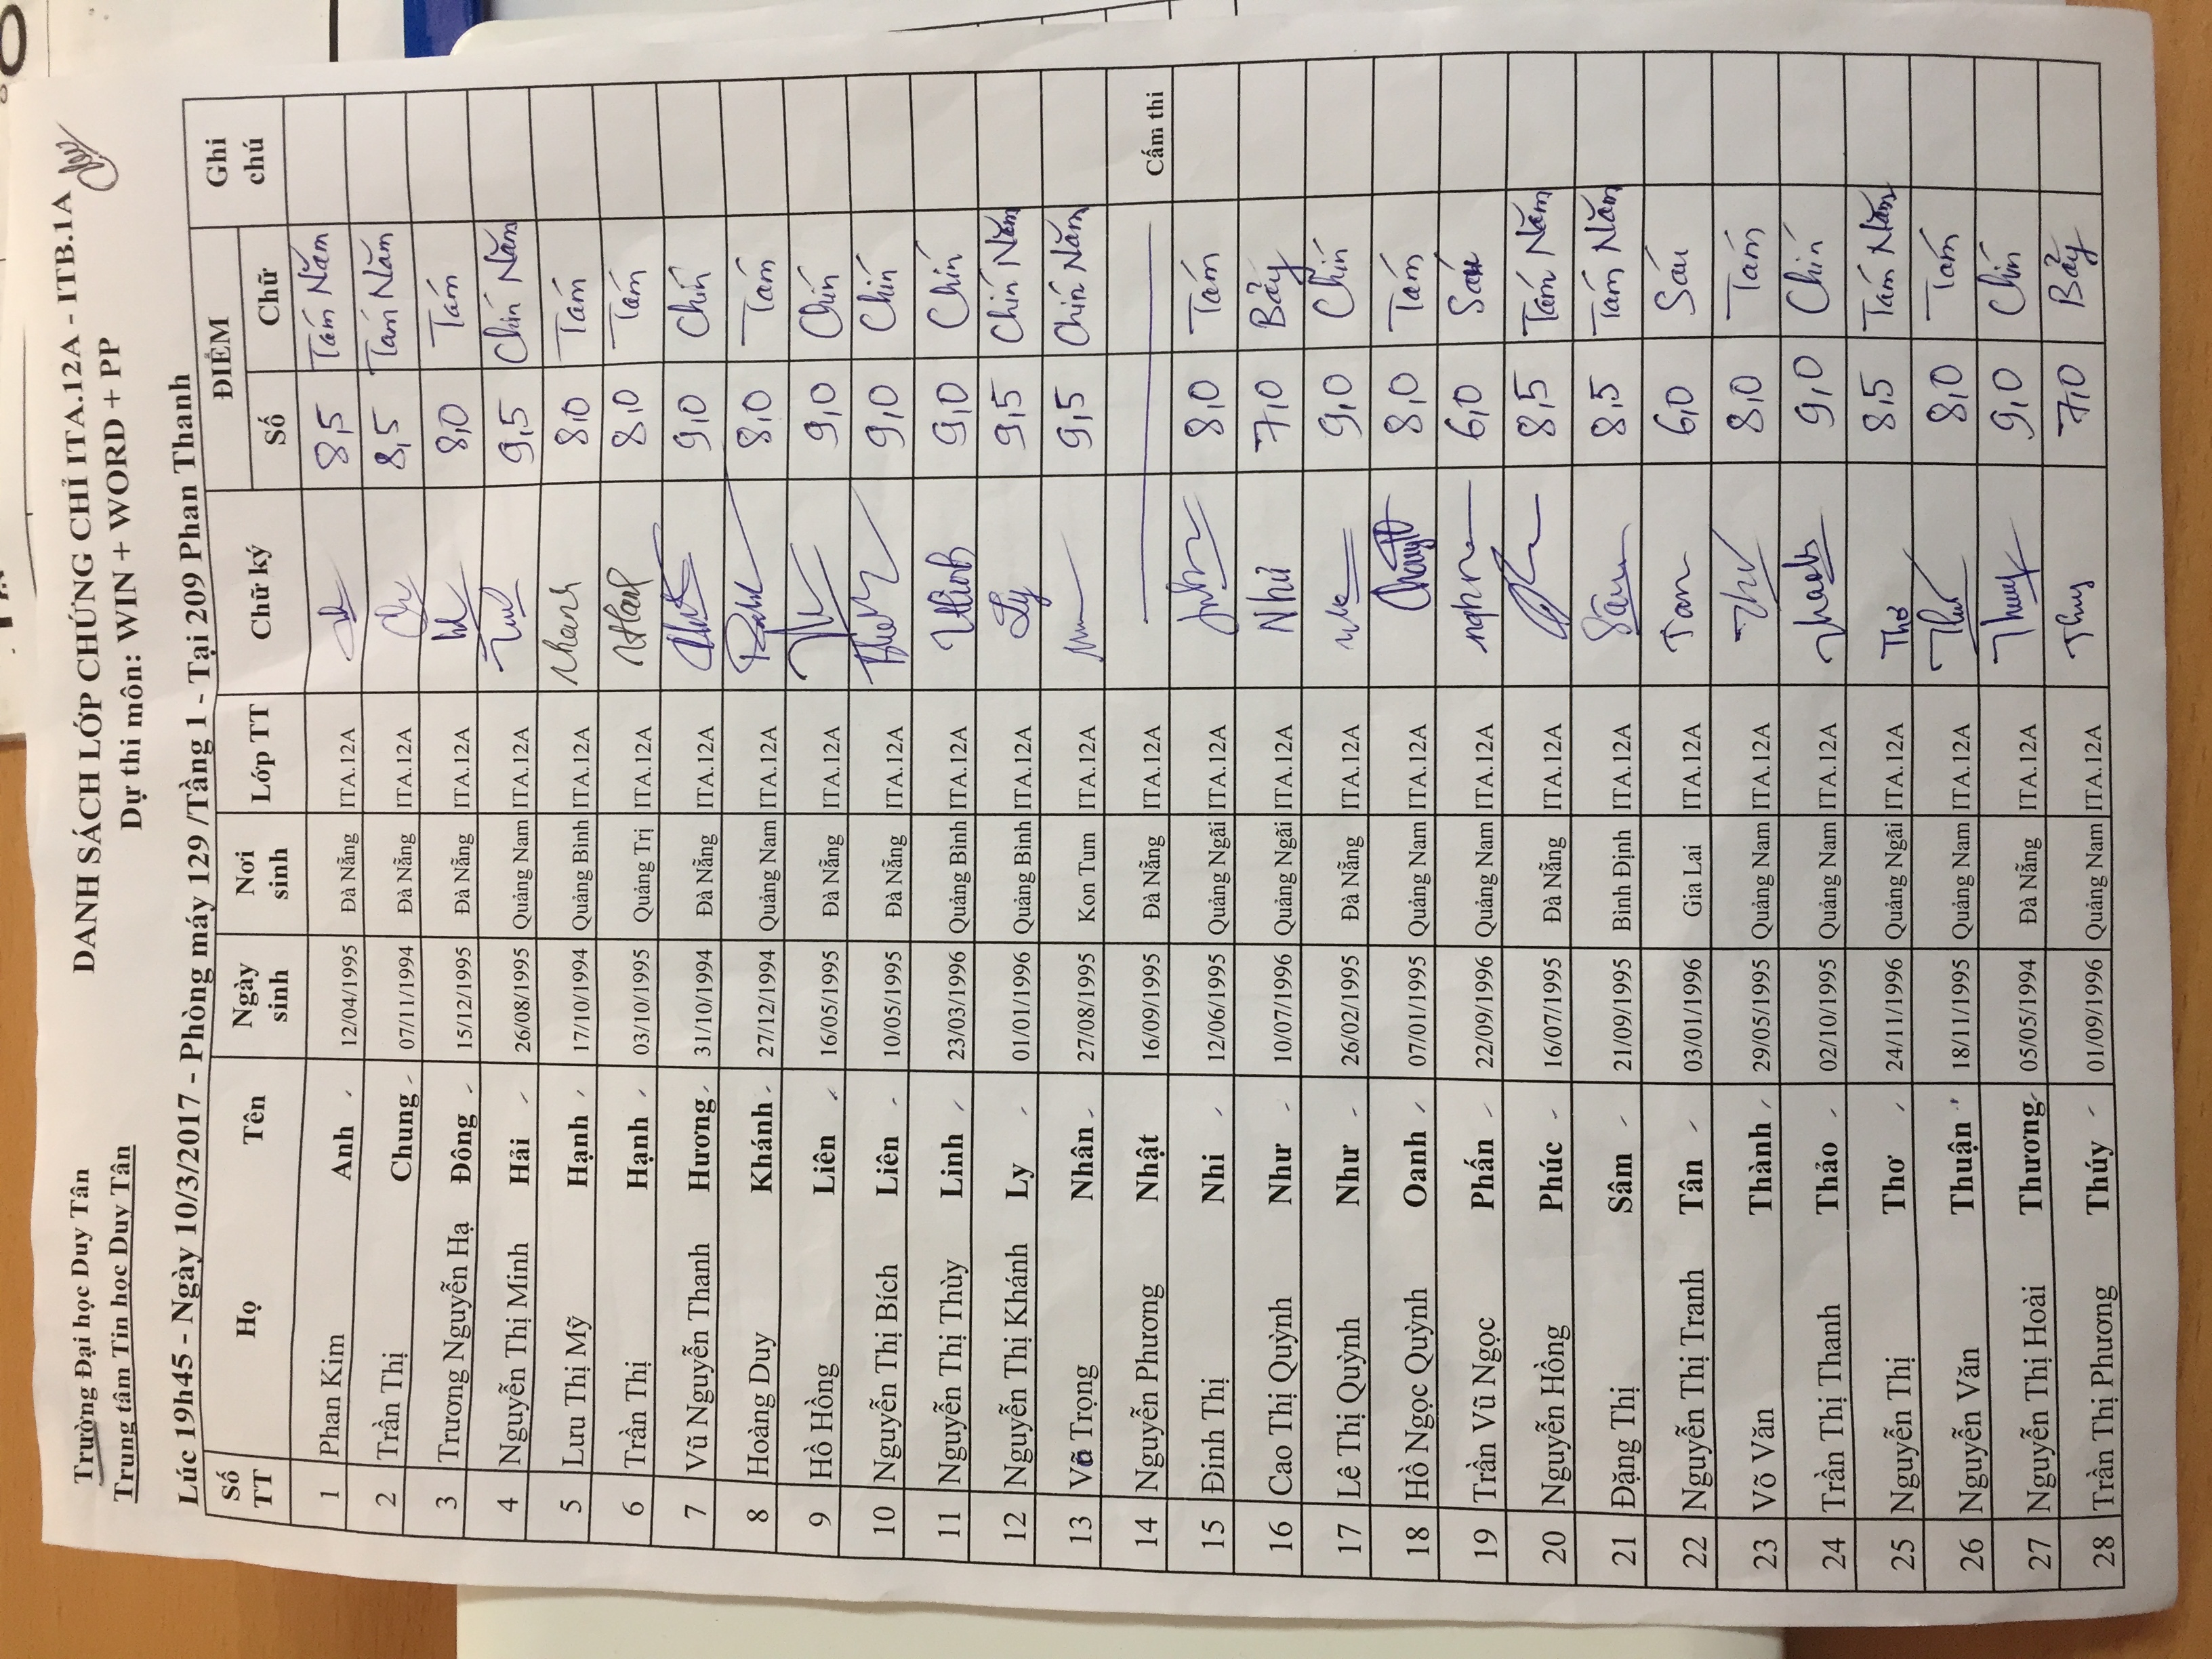 Trường Đại học Duy Tân
Trung tâm Tin học Duy Tân
DANH SÁCH LỚP CHỨNG CHỈ ITA.12A - ITB.1A
Dự thi môn: WIN + WORD + PP
Lúc 19h45 - Ngày 10/3/2017 - Phòng máy 129 /Tầng 1 - Tại 209 Phan Thanh
Số TT Họ Tên Ngày sinh Nơi sinh Lớp TT Chữ ký ĐIỂM Số Chữ Ghi chú
1 Phan Kim Anh 12/04/1995 Đà Nẵng ITA.12A 8,5 Tám Năm
2 Trần Thị Chung 07/11/1994 Đà Nẵng ITA.12A 8,5 Tám Năm
3 Trương Nguyễn Hạ Đông 15/12/1995 Đà Nẵng ITA.12A 8,0 Tám
4 Nguyễn Thị Minh Hải 26/08/1995 Quảng Nam ITA.12A 9,5 Chín Năm
5 Lưu Thị Mỹ Hạnh 17/10/1994 Quảng Bình ITA.12A 8,0 Tám
6 Trần Thị Hạnh 03/10/1995 Quảng Trị ITA.12A 8,0 Tám
7 Vũ Nguyễn Thanh Hương 31/10/1994 Đà Nẵng ITA.12A 9,0 Chín
8 Hoàng Duy Khánh 27/12/1994 Quảng Nam ITA.12A 8,0 Tám
9 Hồ Hồng Liên 16/05/1995 Đà Nẵng ITA.12A 9,0 Chín
10 Nguyễn Thị Bích Liên 10/05/1995 Đà Nẵng ITA.12A 9,0 Chín
11 Nguyễn Thị Thùy Linh 23/03/1996 Quảng Bình ITA.12A 9,0 Chín
12 Nguyễn Thị Khánh Ly 01/01/1996 Quảng Bình ITA.12A Ly 9,5 Chín Năm
13 Võ Trọng Nhân 27/08/1995 Kon Tum ITA.12A 9,5 Chín Năm
14 Nguyễn Phương Nhật 16/09/1995 Đà Nẵng ITA.12A Cấm thi
15 Đinh Thị Nhi 12/06/1995 Quảng Ngãi ITA.12A 8,0 Tám
16 Cao Thị Quỳnh Như 10/07/1996 Quảng Ngãi ITA.12A Như 7,0 Bảy
17 Lê Thị Quỳnh Như 26/02/1995 Đà Nẵng ITA.12A 9,0 Chín
18 Hồ Ngọc Quỳnh Oanh 07/01/1995 Quảng Nam ITA.12A 8,0 Tám
19 Trần Vũ Ngọc Phấn 22/09/1996 Quảng Nam ITA.12A 6,0 Sáu
20 Nguyễn Hồng Phúc 16/07/1995 Đà Nẵng ITA.12A 8,5 Tám Năm
21 Đặng Thị Sâm 21/09/1995 Bình Định ITA.12A Sâm 8,5 Tám Năm
22 Nguyễn Thị Tranh Tân 03/01/1996 Gia Lai ITA.12A Tân 6,0 Sáu
23 Võ Văn Thành 29/05/1995 Quảng Nam ITA.12A 8,0 Tám
24 Trần Thị Thanh Thảo 02/10/1995 Quảng Nam ITA.12A 9,0 Chín
25 Nguyễn Thị Thơ 24/11/1996 Quảng Ngãi ITA.12A Thơ 8,5 Tám Năm
26 Nguyễn Văn Thuận 18/11/1995 Quảng Nam ITA.12A 8,0 Tám
27 Nguyễn Thị Hoài Thương 05/05/1994 Đà Nẵng ITA.12A 9,0 Chín
28 Trần Thị Phương Thúy 01/09/1996 Quảng Nam ITA.12A Thuy 7,0 Bảy